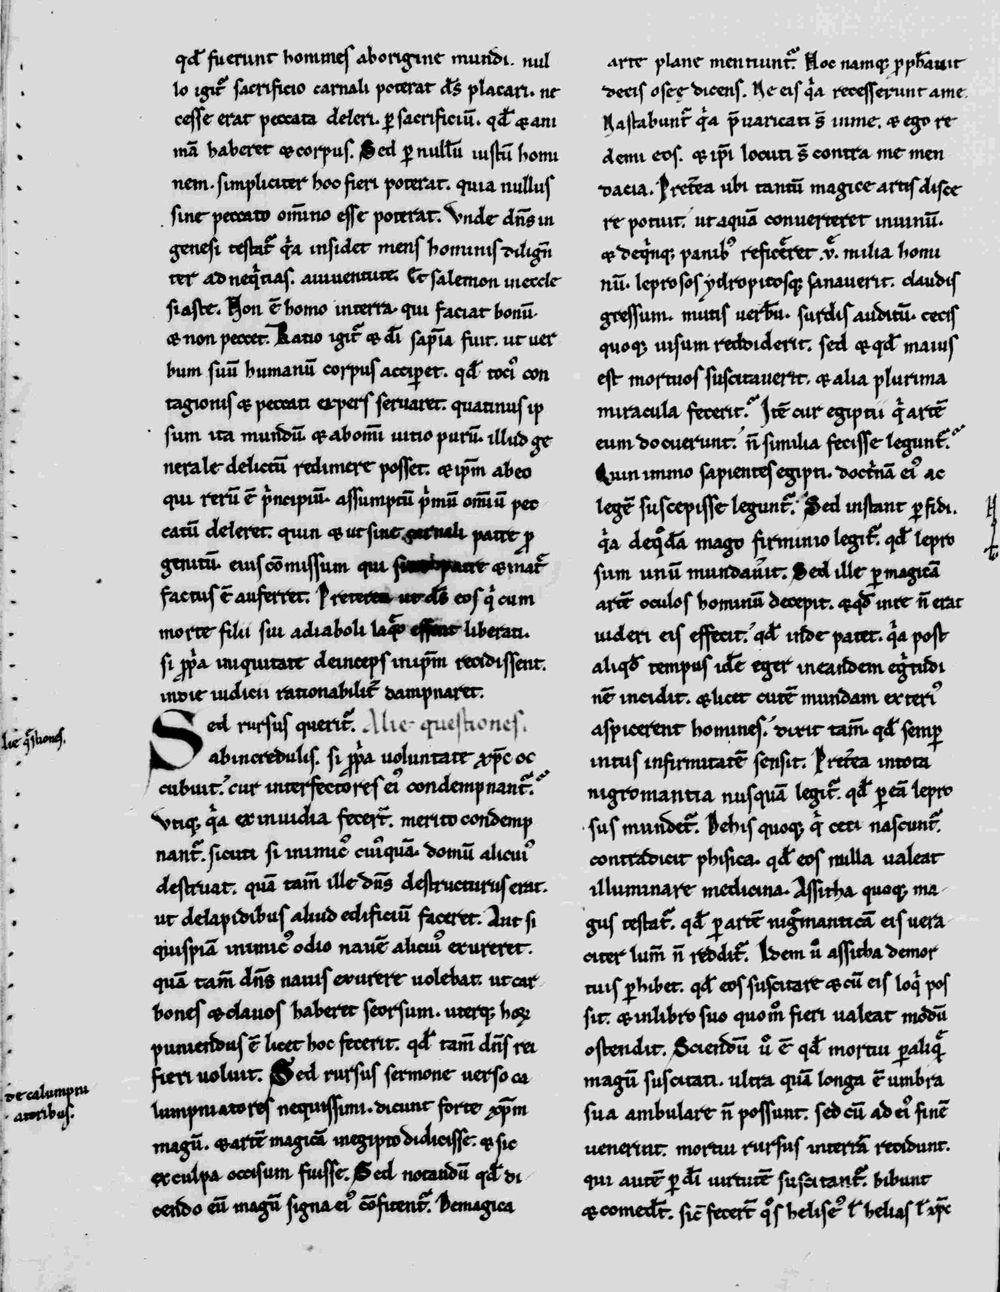 qđ fuerunt homines aborigine mundi. nul
lo igit᷑ sacrificio carnali poterat dš placari. ne
cesse erat peccata deleri. ꝑ sacrificiū. qđ & ani
mā haberet & corpus. Sed ꝑ nullū iustū homi
nem. simpliciter hoc fieri poterat. quia nullus
sine peccato om̄ino esse poterat. Vnde dn̄s in
genesi testat᷑ qͥa insidet mens hominis diligēn
ter ad neqͥtias. a iuuentute. Et salemon in eccle
siaste. Non ē homo in terra. qui faciat bonū.
& non peccet. Ratio igit᷑ & dī sapīa fuit. ut uer
bum suū humanū corpus acciꝑet. qđ tociꝰ con
tagionis & peccati expers seruaret. quatinus ip
sum ita mundū. & ab om̄i uitio purū. illud ge
nerale delictū redimere posset. & ip̄m ab eo
qui rerū ē pͥncipiū. assumptū pͥmū om̄iū pec
catū deleret. quin & ut sine carnali patre ꝓ
genitū. eius cōmissum qui sine patre & mat᷑
factus ē auferret. Preterea ut dš eos qͥ cum
morte filii sui a diaboli laq̄o essent liberati.
si ꝓp̄a iniquitate deinceps in ip̄m recidissent.
in die iudicii rationabilit᷑ dampnaret.
Sed rursus querit᷑. Alie questiones.
ab incredulis. si ꝓp̄a uoluntate xp̄c oc
cubuit. cur interfectores eiꝰ condempnant᷑.
lie q̄stiones.
Vtiq; qͥa ex inuidia fecert̄. merito condemp
nant᷑. sicuti si inimicꝰ cuiꝰquā. domū alicuiꝰ
destruat. quā tam̄ ille dn̄s destructurus erat.
ut de lapidibus aliud edificiū faceret. Aut si
quispiā inimicꝰ odio nauē alicuiꝰ exureret.
quā tam̄ dn̄s nauis exurere uolebat. ut car
bones & clauos haberet seorsum. uterq; hoꝝ
puniendus ē licet hoc fecerit. qđ tam̄ dn̄s rei
fieri uoluit. Sed rursus sermone uerso ca
de calumpni
atoribus.
lumpniatores nequissimi. dicunt forte xp̄m
magū. & artē magicā in egipto didicisse. & sic
ex culpa occisum fuisse. Sed notandū qđ di
cendo eū magū signa eiꝰ cōfitent᷑. De magica
arte plane mentiunt᷑. Hoc namq; ꝓph̄auit
de eis oseę dicens. Ve eis qͥa recesserunt a me.
Vastabunt᷑ qͥa p̄uaricati s̄ in me. & ego re
demi eos. & ip̄i locuti s̄ contra me men
dacia. Pret̄ea ubi tantū magice artis disce
re potuit. ut aquā conuerteret in uinū.
& de qͥnq; panibꝰ reficeret .v. milia homi
nū. leprosos ydropicosq; sanauerit. claudis
gressum. mutis uerbū. surdis auditū. cecis
quoq; uisum reddiderit. sed & qđ maius
est mortuos suscitauerit. & alia plurima
miracula fecerit. Itē cur egiptii qͥ artē
eum docuerunt. n̄ similia fecisse legunt᷑.
Quin immo sapientes egipti. doctͥnā eiꝰ ac
legē suscepisse legunt᷑. Sed instant ꝑfidi.
qͥa de qͦdā mago firminio legit᷑. qđ lepro
sum unū mundauit. Sed ille ꝑ magicā
artē oculos hominū decepit. & qđ in re n̄ erat
uideri eis effecit. qđ inde patet. qͥa post
aliqđ tempus idē eger in eandem egͥtudi
nē incidit. & licet cutē mundam exteriꝰ
aspicerent homines. dixit tam̄. qđ semꝑ
intus infirmitatē sensit. Pret̄ea in tota
nigromantia nusquā legit᷑. qđ ꝑ eā lepro
sus mundet᷑. De his quoq; qͥ ceci nascunt᷑.
contradicit phisica. qđ eos nulla ualeat
illuminare medicina. Assitha quoq; ma
gus testat᷑. qđ ꝑ artē nigͦmanticā eis uera
citer lum̄ n̄ reddit᷑. Idem u̇ assitha de mor
tuis ꝑhibet. qđ eos suscitare & cū eis loqͥ pos
sit. & in libro suo quom̊ fieri ualeat modū
ostendit. Sciendū u̇ ē qđ mortui ꝑ aliqͣ̄
magū suscitati. ultra quā longa ē umbra
sua ambulare n̄ possunt. sed cū ad eiꝰ finē
uenerint. mortui rursus in terrā recidunt.
qui autē ꝑ dī uirtutē suscitant᷑. bibunt
& comedt̄. sic̄ fecert̄ qͦs heliseꝰ ł helias ł xp̄c